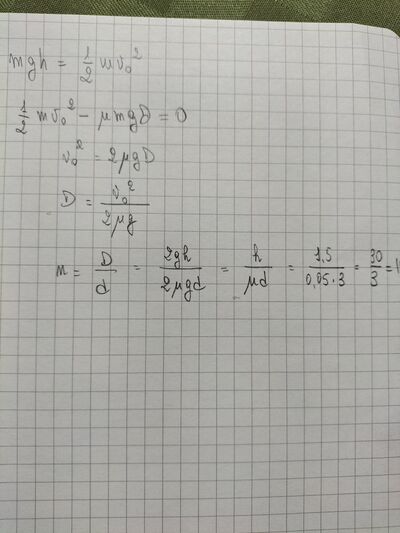 mgh = 1/2 mv₀²
1/2 mv₀² - μmgD = 0
v₀² = 2μgD
D = v₀²/2μg
n = D/d = 2gh/2μgd = h/μd = 1,5/0,05·3 = 30/3 = 1